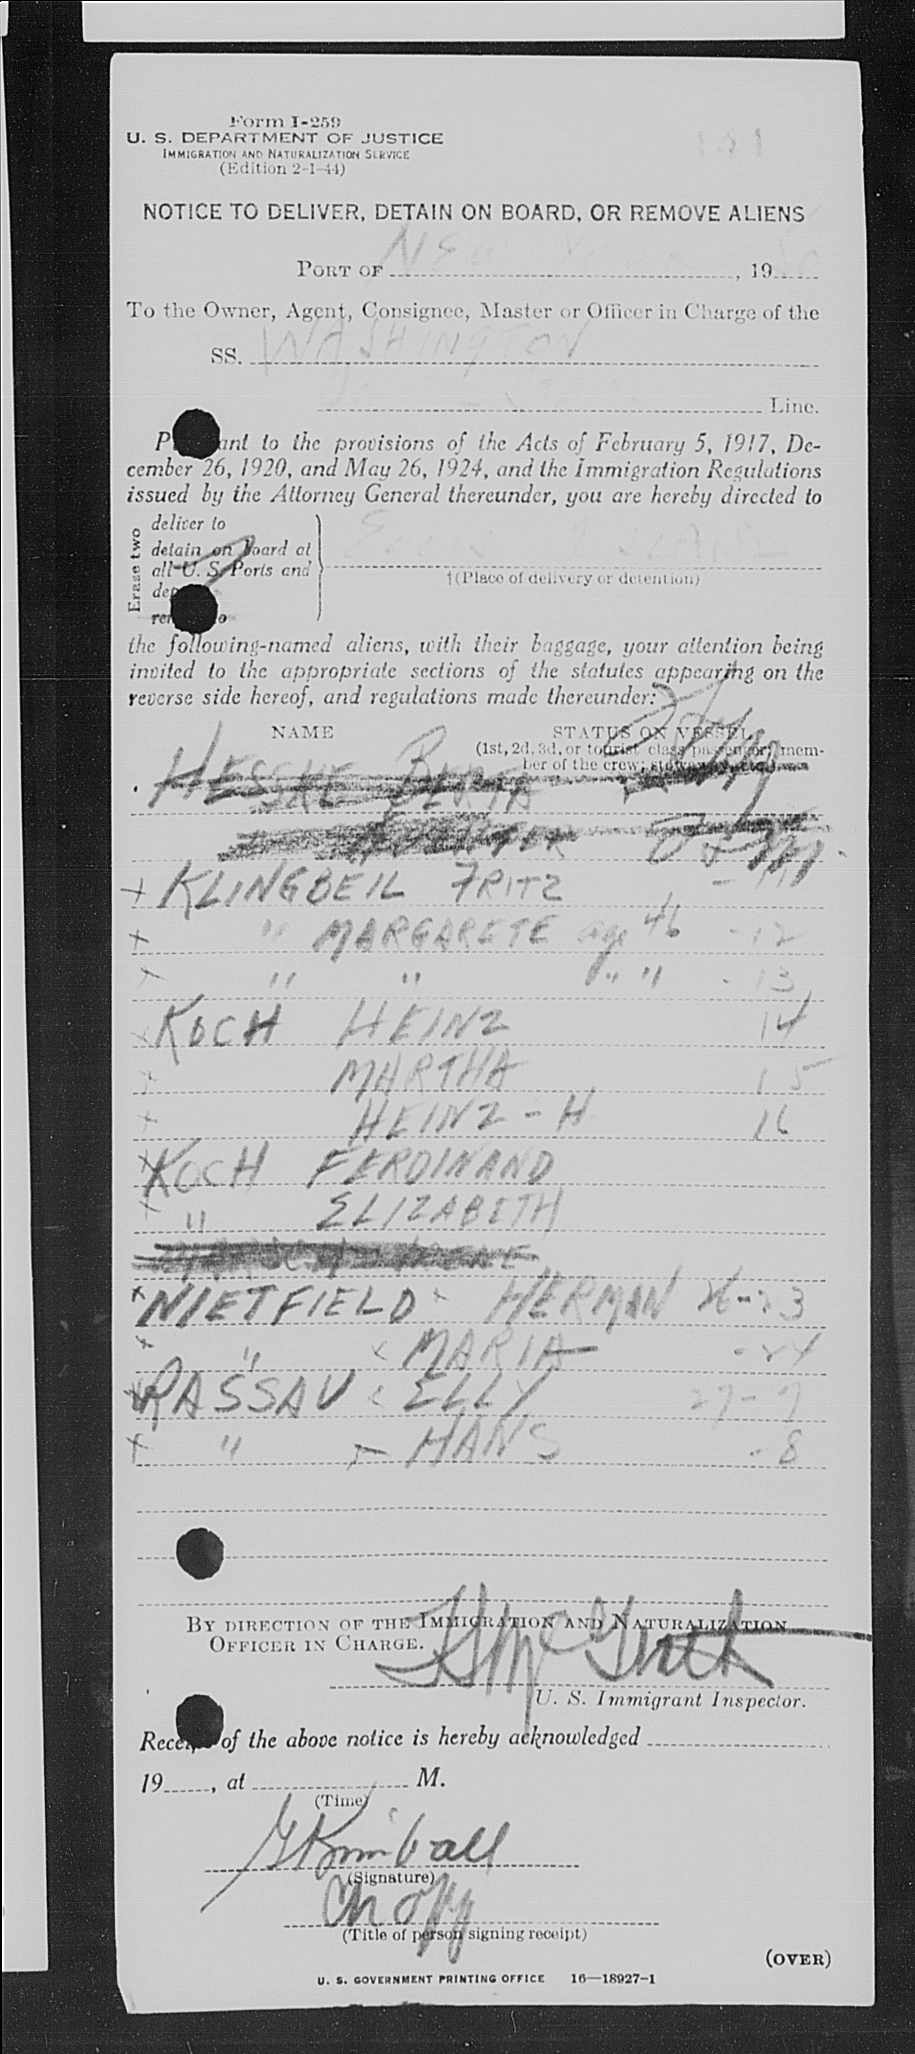 Form I-259
U. S. DEPARTMENT OF JUSTICE
IMMIGRATION AND NATURALIZATION SERVICE
(Edition 2-1-44)
NOTICE TO DELIVER, DETAIN ON BOARD, OR REMOVE ALIENS
PORT OF NEW , 19
To the Owner, Agent, Consignee, Master or Officer in Charge of the
SS. WASHINGTON
Line.
ant to the provisions of the Acts of February 5, 1917, De-
cember 26, 1920, and May 26, 1924, and the Immigration Regulations
issued by the Attorney General thereunder, you are hereby directed to
Erase two
deliver to
detain on board at
all U. S. Ports and
†(Place of delivery or detention)
the following-named aliens, with their baggage, your attention being
invited to the appropriate sections of the statutes appearing on the
reverse side hereof, and regulations made thereunder:
NAME STATUS ON VESSEL
(1st, 2d, 3d, or tourist class passenger, mem-
ber of the crew, stowaway, etc.)
HESSKE BERTA
x KLINGBEIL FRITZ - 11
x " MARGARETE age 46 - 12
x " " " " - 13
x KOCH HEINZ 14
x MARTHA 15
x HEINZ - H 16
x KOCH FERDINAND
x " ELIZABETH
x NIETFIELD x HERMAN 26-23
x " x MARIA - 24
x PASSAU x ELLY 27-7
x " x HANS - 8
BY DIRECTION OF THE IMMIGRATION AND NATURALIZATION
OFFICER IN CHARGE.
U. S. Immigrant Inspector.
Receipt of the above notice is hereby acknowledged
19 , at M.
(Time)
G Kimball
(Signature)
Ch Off
(Title of person signing receipt)
(OVER)
U. S. GOVERNMENT PRINTING OFFICE 16—18927-1